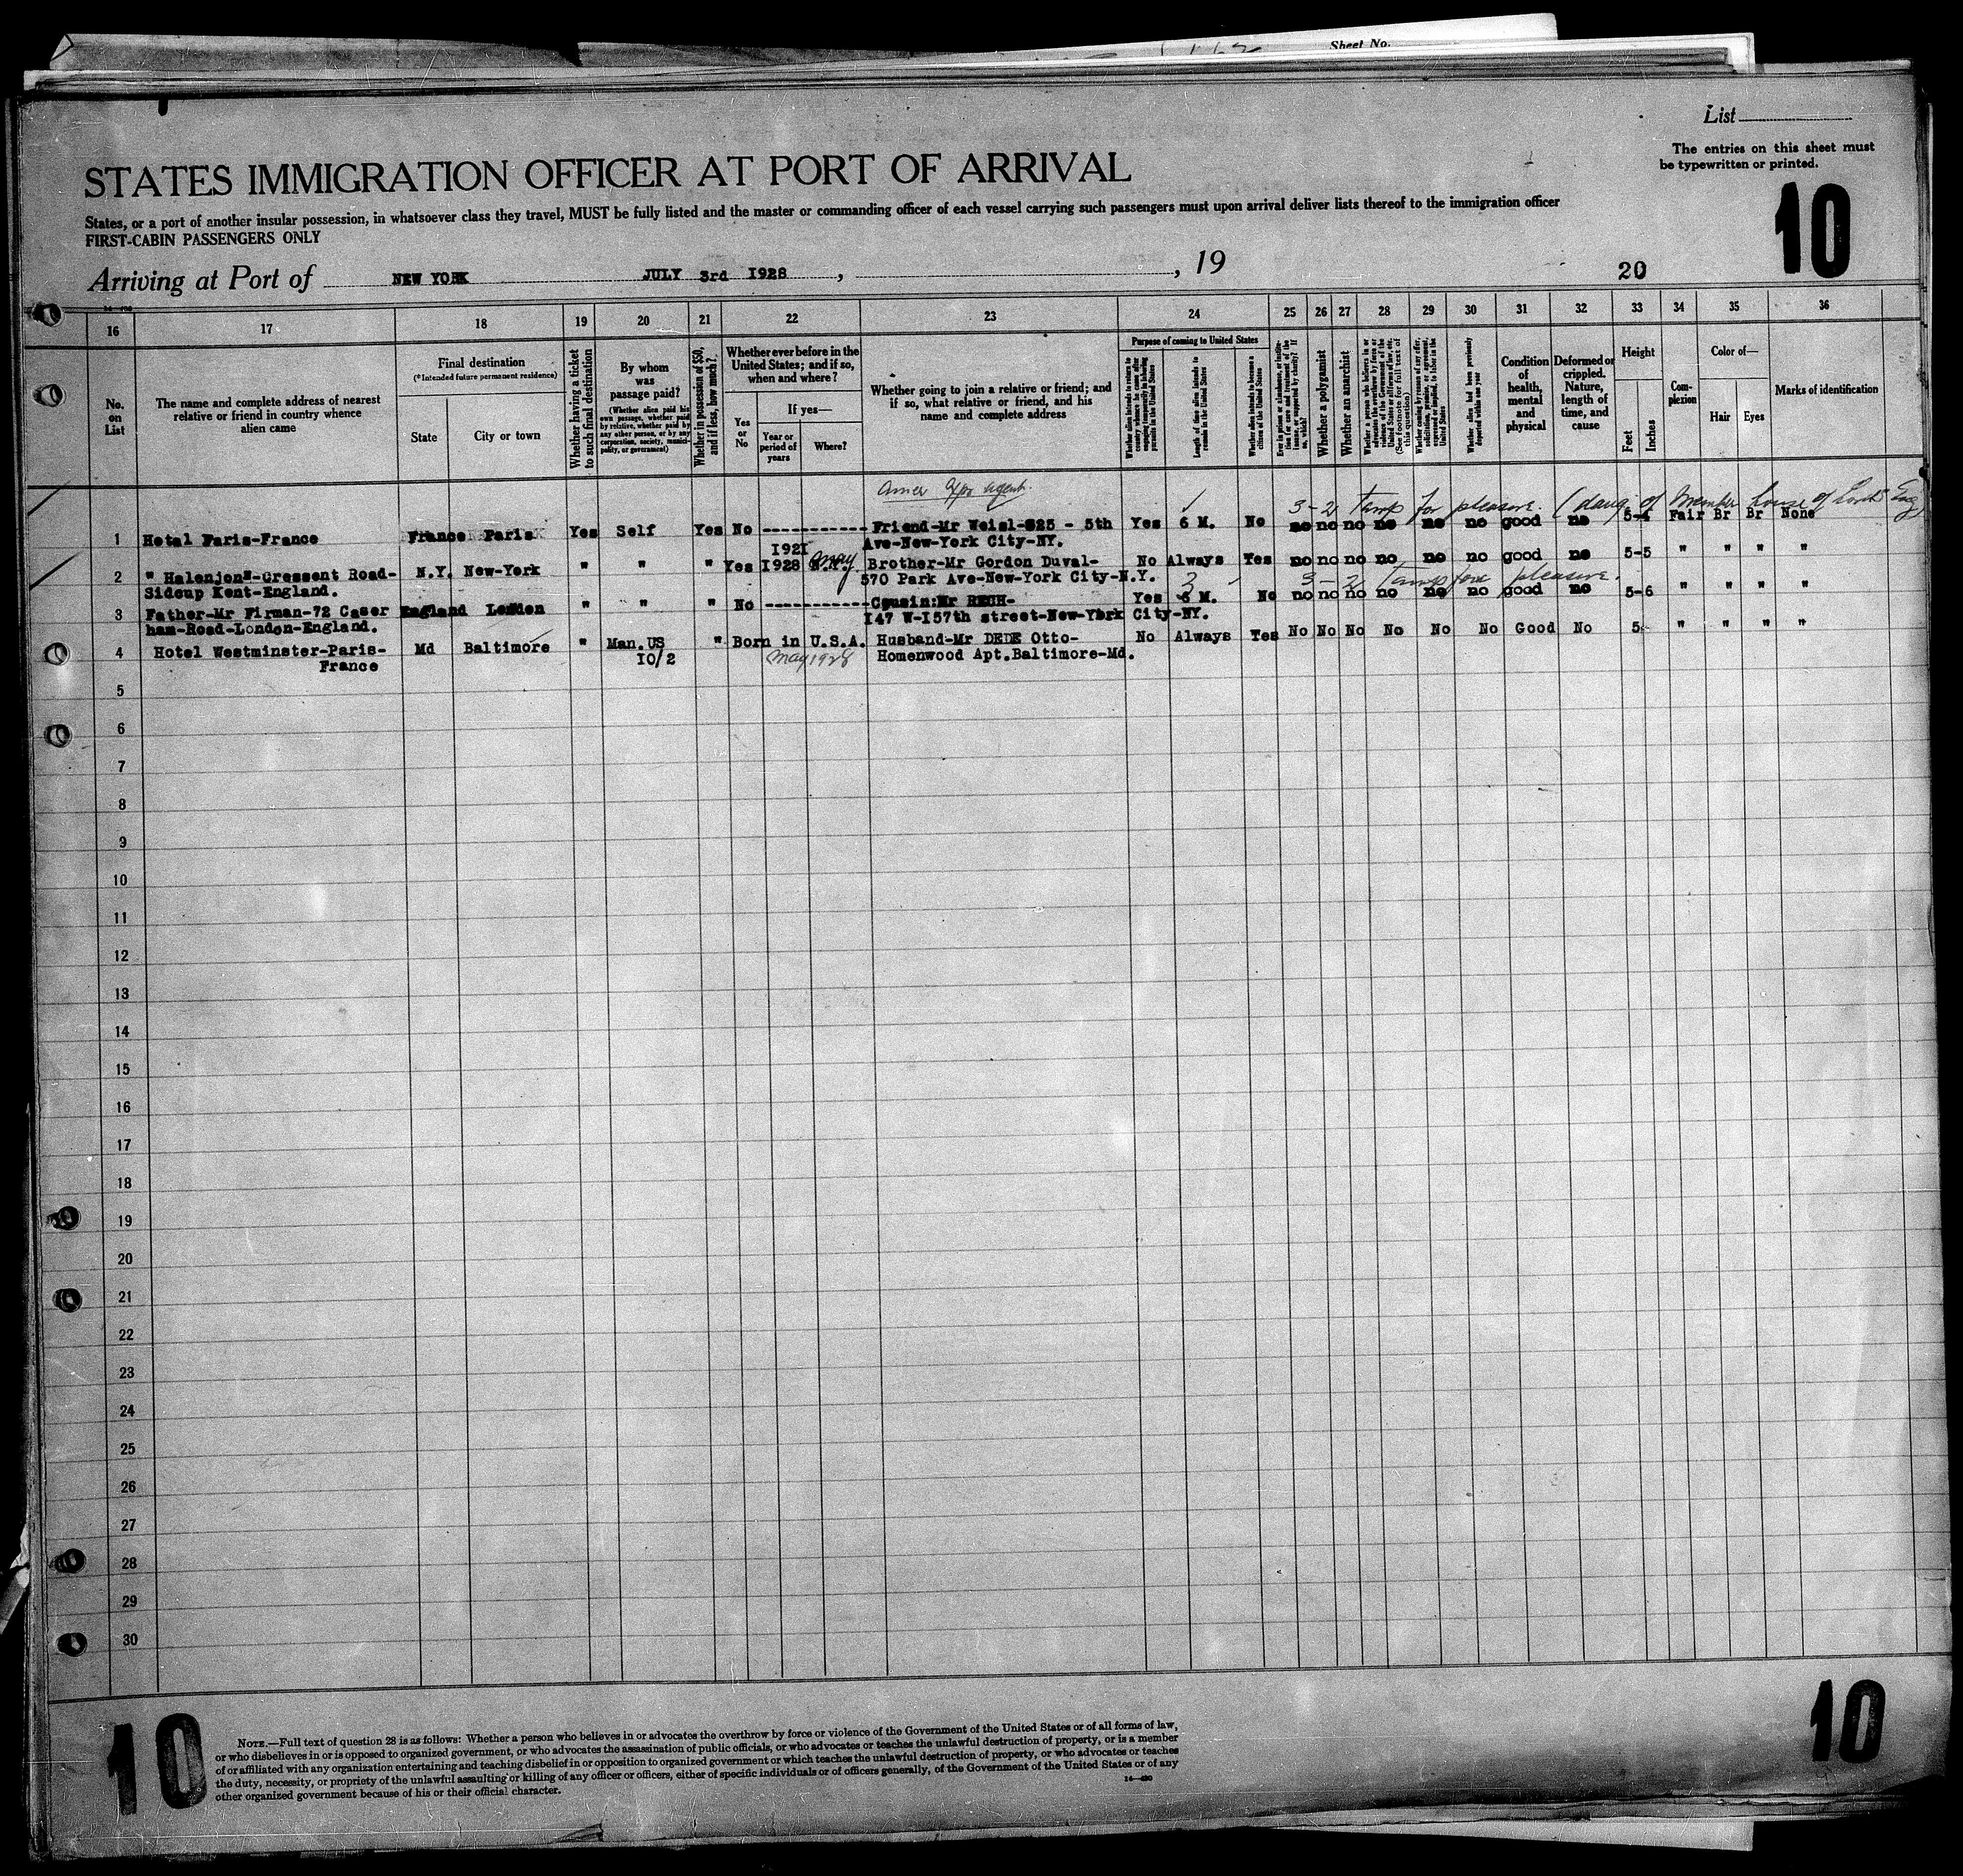 Sheet No.
List
The entries on this sheet must
be typewritten or printed.
STATES IMMIGRATION OFFICER AT PORT OF ARRIVAL
10
States, or a port of another insular possession, in whatsoever class they travel, MUST be fully listed and the master or commanding officer of each vessel carrying such passengers must upon arrival deliver lists thereof to the immigration officer
FIRST-CABIN PASSENGERS ONLY
Arriving at Port of NEW YORK JULY 3rd 1928 , , 19
20
16 17 18 19 20 21 22 23 24 25 26 27 28 29 30 31 32 33 34 35 36
No.
on
List
The name and complete address of nearest
relative or friend in country whence
alien came
Final destination
(*Intended future permanent residence)
State
City or town
Whether having a ticket
to such final destination
By whom
was
passage paid?
(Whether alien paid his
own passage, whether paid
by relative, whether paid by
any other person, or by any
corporation, society, munici-
pality, or government)
Whether in possession of $50,
and if less, how much?
Whether ever before in the
United States; and if so,
when and where?
Yes
or
No
If yes—
Year or
period of
years
Where?
Whether going to join a relative or friend; and
if so, what relative or friend, and his
name and complete address
Purpose of coming to United States
Whether alien intends to return to
country whence he came after
engaging temporarily in laboring
pursuits in the United States
Length of time alien intends to
remain in the United States
Whether alien intends to become a
citizen of the United States
Whether a polygamist
Whether an anarchist
Whether alien had been previously
deported within one year
Condition
of
health,
mental
and
physical
Deformed or
crippled.
Nature,
length of
time, and
cause
Height
Feet
Inches
Com-
plexion
Color of—
Hair
Eyes
Marks of identification
Amer Exp agent.
3-2 temp for pleasure. (daug of Member house of Lords Eng)
1 Hotal Paris-France France Paris Yes Self Yes No ----------- Friend-Mr Weisl-825 - 5th Yes 6 M. No no no no no no no good no 5-4 Fair Br Br None
Ave-New-York City-NY.
1921
2 " Halenjon"-Cressent Road- N.Y. New-York " " " Yes 1928 N.Y. May Brother-Mr Gordon Duval- No Always Yes no no no no no no good no 5-5 " " " "
Sidcup Kent-England. 570 Park Ave-New-York City-N.Y.
3-2 temp for pleasure.
3 Father-Mr Firman-72 Caser England London " " " No ----------- Cousin:Mr RECH- Yes 6 M. No no no no no no no good no 5-6 " " " "
ham-Road-London-England. 147 W-157th street-New-York City-NY.
4 Hotel Westminster-Paris- Md Baltimore " Man.US " Born in U.S.A. Husband-Mr DEDE Otto- No Always Yes No No No No No No Good No 5- " " " "
France 10/2 May 1928 Homenwood Apt.Baltimore-Md.
5
6
7
8
9
10
11
12
13
14
15
16
17
18
19
20
21
22
23
24
25
26
27
28
29
30
10
10
NOTE.—Full text of question 28 is as follows: Whether a person who believes in or advocates the overthrow by force or violence of the Government of the United States or of all forms of law,
or who disbelieves in or is opposed to organized government, or who advocates the assassination of public officials, or who advocates or teaches the unlawful destruction of property, or is a member
of or affiliated with any organization entertaining and teaching disbelief in or opposition to organized government or which teaches the unlawful destruction of property, or who advocates or teaches
the duty, necessity, or propriety of the unlawful assaulting or killing of any officer or officers, either of specific individuals or of officers generally, of the Government of the United States or of any
other organized government because of his or their official character.